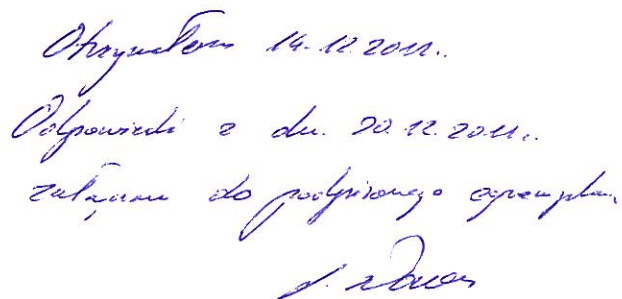 Otrzymałem 14.12.2011r.
Odpowiedź z dn. 20.12.2011r.
załączam do podpisanego egzemplarza